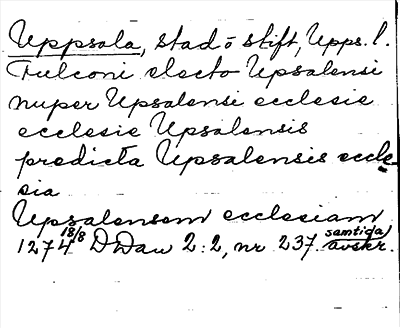 Uppsala, stad o stift, Upps. l.
Fulconi electo Upsalensi
nuper Upsalensi ecclesie
ecclesie Upsalensis
predicta Upsalensis eccle-
sia
Upsalensem ecclesiam
1274 18/8 DDan 2:2, nr 237. samtida avskr.